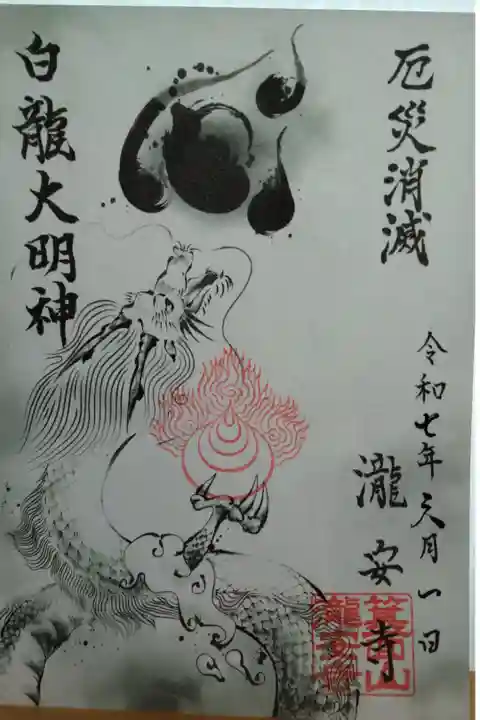 厄災消滅
令和七年六月一日
瀧安寺
箕面山
瀧安寺
白龍大明神